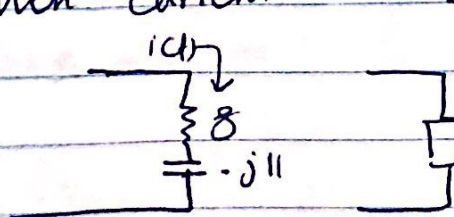 i(t)
8
-j11